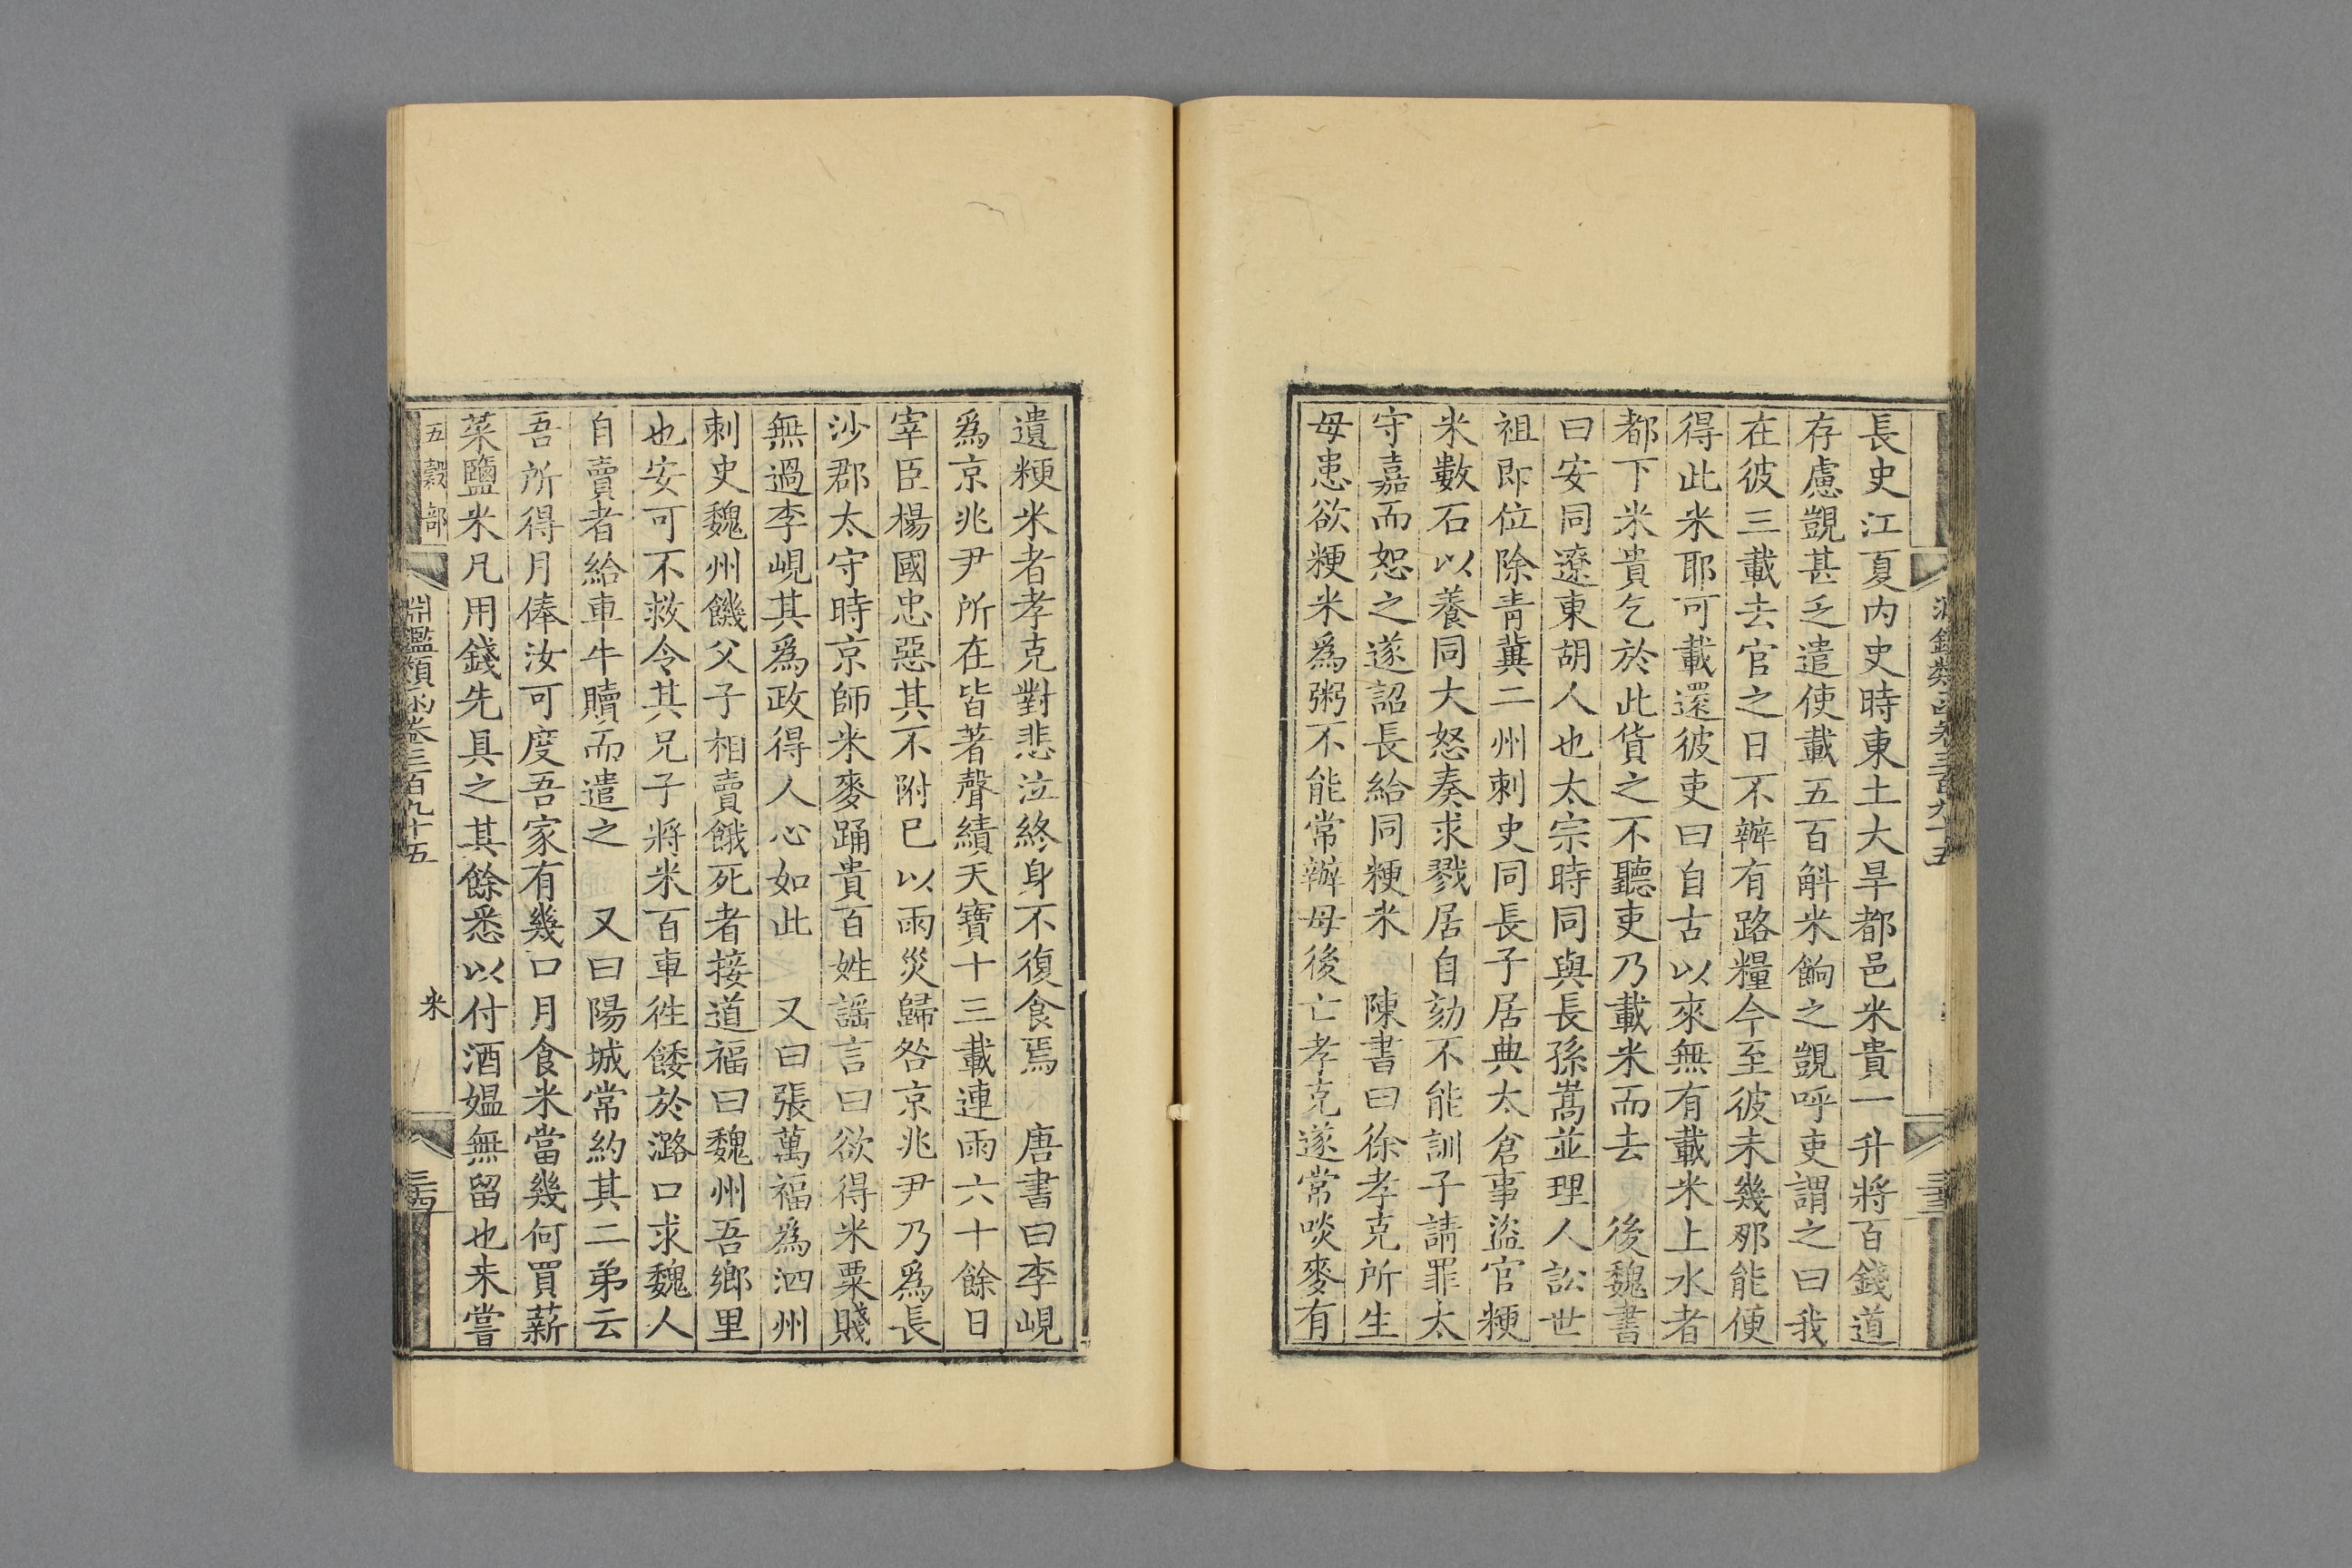 長史江夏内史時東土大旱都邑米貴一升將百錢道
存慮覬甚乏遣使載五百斛米餉之覬呼吏謂之曰我
在彼三載去官之日不辦有路糧今至彼未幾那能便
得此米耶可載還彼吏曰自古以來無有載米上水者
都下米貴乞於此貨之不聽吏乃載米而去 後魏書
曰安同遼東胡人也太宗時同與長孫嵩並理人訟世
祖即位除青冀二州刺史同長子居典太倉事盜官粳
米數石以養同大怒奏求戮居自劾不能訓子請罪太
守嘉而恕之遂詔長給同粳米 陳書曰徐孝克所生
母患欲粳米爲粥不能常辦母後亡孝克遂常啖麥有
遺粳米者孝克對悲泣終身不復食焉 唐書曰李峴
爲京兆尹所在皆著聲績天寶十三載連雨六十餘日
宰臣楊國忠惡其不附巳以雨災歸咎京兆尹乃爲長
沙郡太守時京師米麥踊貴百姓謡言曰欲得米粟賤
無過李峴其爲政得人心如此 又曰張萬福爲泗州
刺史魏州饑父子相賣餓死者接道福曰魏州吾鄉里
也安可不救令其兄子將米百車徃餧於潞口求魏人
自賣者給車牛贖而遣之 又曰陽城常約其二弟云
吾所得月俸汝可度吾家有幾口月食米當幾何買薪
菜鹽米凡用錢先具之其餘悉以付酒媪無留也未嘗
五穀部 淵鑑類函卷三百九十五 米 三四